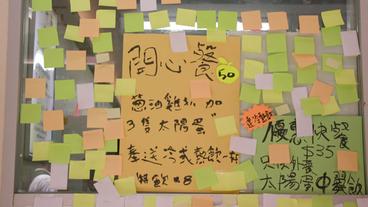 開心餐
50
蔥油雞扒加
3隻太陽蛋
奉送冷或熱飲一杯
特飲+8
優惠快餐
$35
只限外賣
太陽蛋